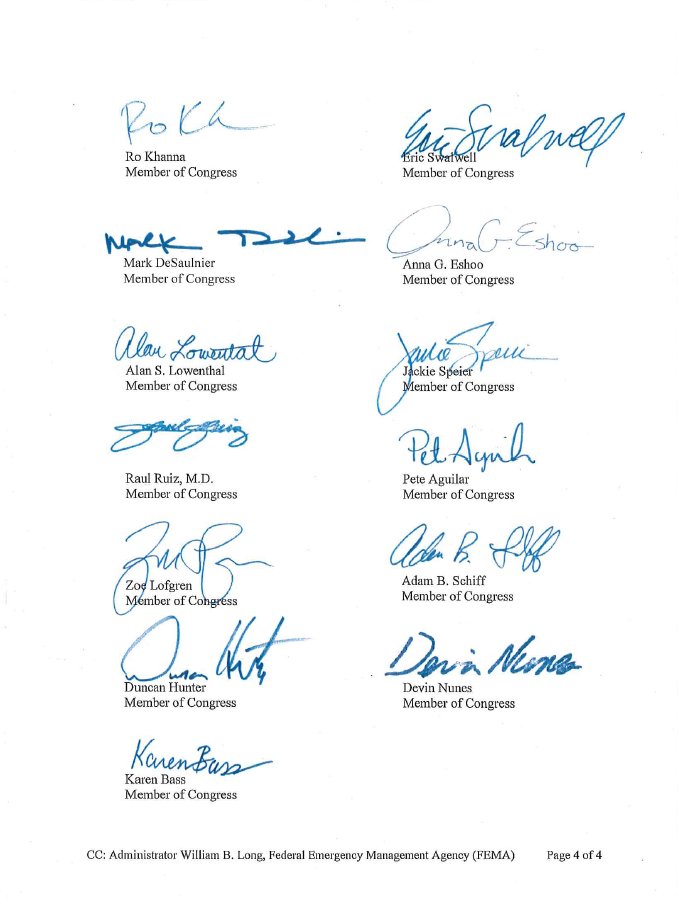 Ro Kh
Ro Khanna
Member of Congress
Eric Swalwell
Eric Swalwell
Member of Congress
Mark
Mark DeSaulnier
Member of Congress
Anna G. Eshoo
Anna G. Eshoo
Member of Congress
Alan Lowental
Alan S. Lowenthal
Member of Congress
Jackie Speier
Jackie Speier
Member of Congress
Raul Ruiz, M.D.
Member of Congress
Pete Aguilar
Member of Congress
Zoe Lofgren
Member of Congress
Adam B. Schiff
Adam B. Schiff
Member of Congress
Duncan Hunter
Member of Congress
Devin Nunes
Devin Nunes
Member of Congress
Karen Bass
Karen Bass
Member of Congress
CC: Administrator William B. Long, Federal Emergency Management Agency (FEMA) Page 4 of 4